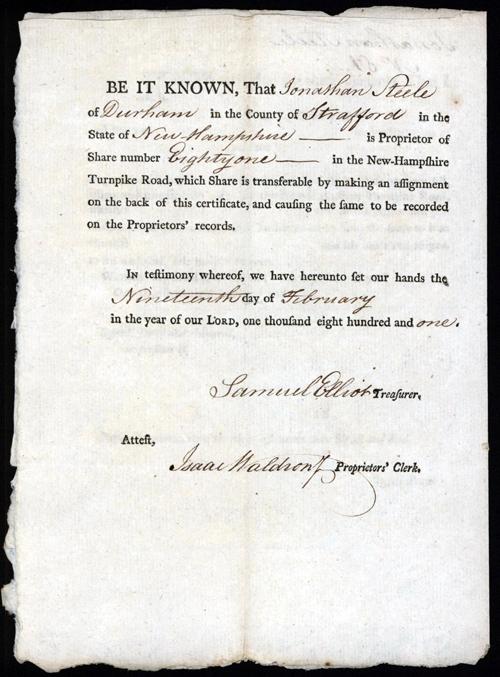 BE IT KNOWN, That Jonathan Steele
of Durham in the County of Strafford in the
State of New Hampshire — is Proprietor of
Share number Eighty one — in the New-Hampſhire
Turnpike Road, which Share is transferable by making an aſſignment
on the back of this certificate, and cauſing the ſame to be recorded
on the Proprietors' records.
In teſtimony whereof, we have hereunto ſet our hands the
Nineteenth day of February
in the year of our Lord, one thouſand eight hundred and one.
Samuel Elliot Treaſurer.
Atteſt,
Isaac Waldron Proprietors' Clerk.